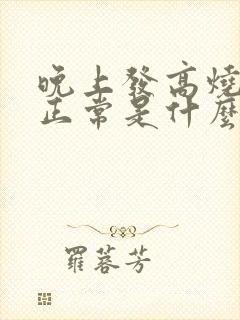 晚上發高燒
正常是什麼
羅蓉芳